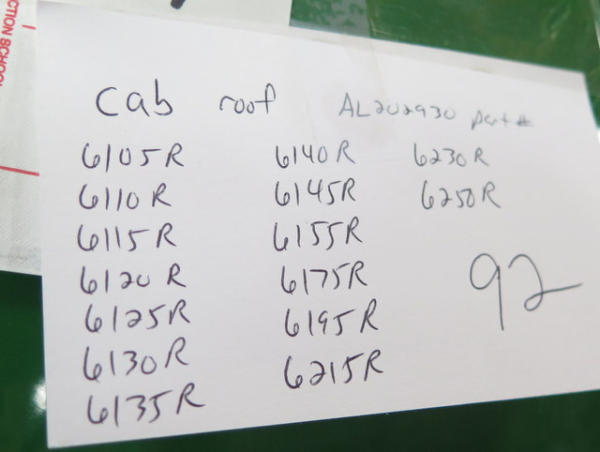 CTION SCHOO
cab roof AL202930 part #
6105R 6140R 6230R
6110R 6145R 6250R
6115R 6155R
6120R 6175R
6125R 6195R
6130R 6215R
6135R
92